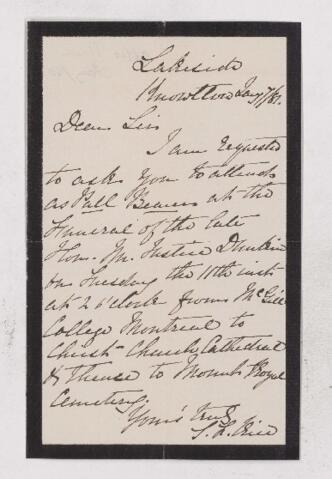 Lakeside
Knowlton Jany 7/81.
Dear Sir
I am requested
to ask you to attend
as Pall Bearer at the
Funeral of the late
Hon. Mr. Justice Dunkin
on Tuesday the 11th inst
at 2 o'clock from McGill
College Montreal to
Christ Church Cathedral
& thence to Mount Royal
Cemetery.
Yours truly